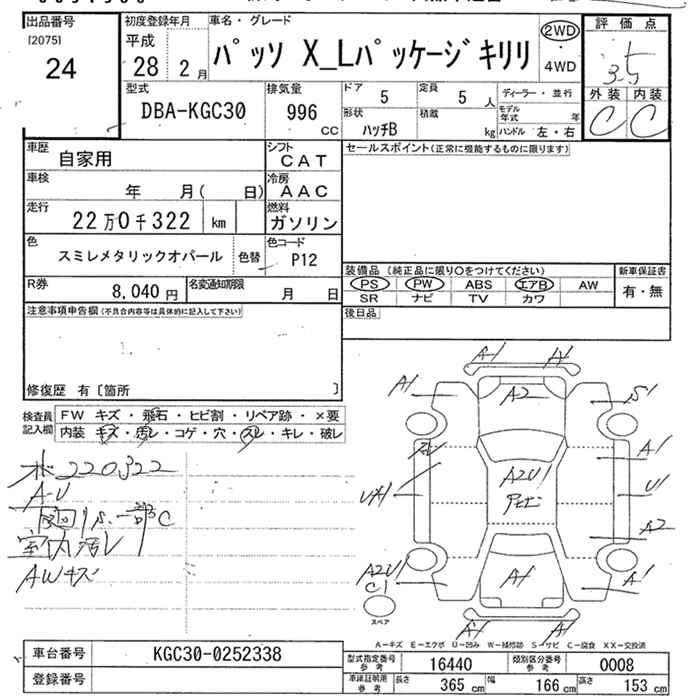 出品番号
[2075]
24
初度登録年月
平成
28 2月
車名・グレード
パッソ X_Lパッケージキリリ
2WD
・
4WD
評価点
3.5
外装 内装
C C
型式
DBA-KGC30
排気量
996
CC
ドア 5
形状
ハッチB
定員 5 人
積載 kg
ディーラー・並行
モデル年式 年
ハンドル 左・右
車歴
自家用
シフト
CAT
車検
年 月( 日)
冷房
AAC
走行
22万0千322 km
燃料
ガソリン
色
スミレメタリックオパール
色替
色コード
P12
R券
8,040 円
名変通知期限
月 日
セールスポイント(正常に機能するものに限ります)
装備品 (純正品に限り○をつけてください)
PS PW ABS エアB AW
SR ナビ TV カワ
新車保証書
有・無
後日品
注意事項申告欄(不具合内容等は具体的に記入して下さい)
修復歴 有〔箇所 〕
検査員記入欄
FW キズ・飛石・ヒビ割・リペア跡・×要
内装 キズ・汚レ・コゲ・穴・スレ・キレ・破レ
220322
A-U
室内汚レ
AWキズ
A1 A1
A1 A2 S1
A1
A2U1
U1
A2
A2U1
C1
A1
A1
A1 A1
スペア
A-キズ E-エクボ U-凹み W-補修跡 S-サビ C-腐食 XX-交換済
車台番号
KGC30-0252338
登録番号
型式指定番号
参考
16440
類別区分番号
参考
0008
車庫証明用
参考
長さ 365 cm
幅 166 cm
高さ 153 cm